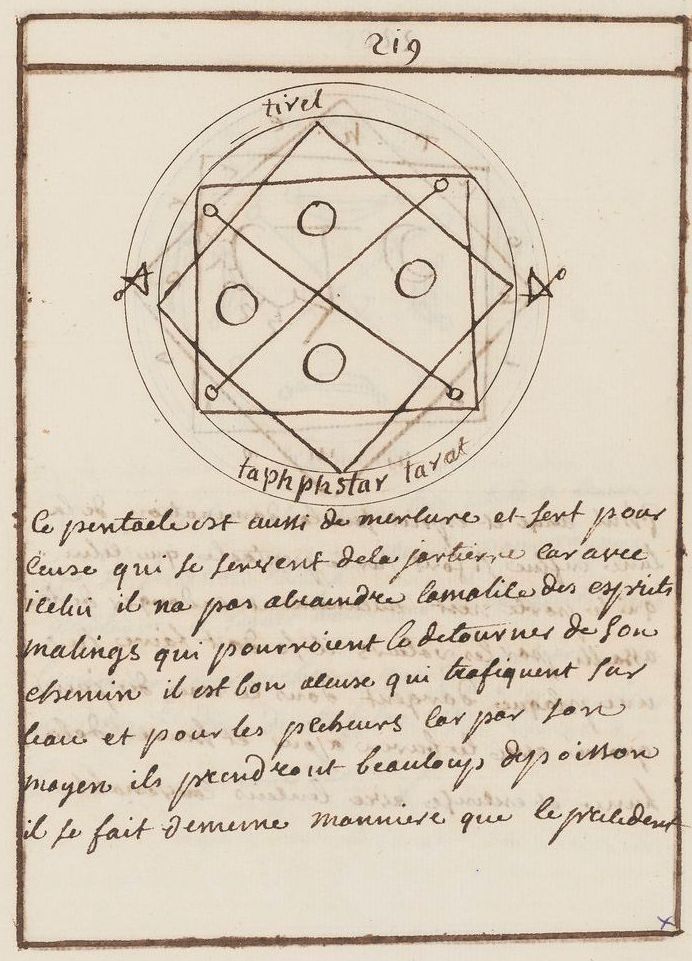 219
tirel
taphphstar tarat
ce pentacle est aussi de mercure et sert pour
ceuse qui se servent dela jartierre car avec
icelui il na pas acraindre lamalice des esprits
malings qui pourroient le detourner de son
chemin il est bon aceuse qui trafiquent sur
leau et pour les pecheurs car par son
moyen ils prendront beaucoup depoisson
il se fait dememe manniere que le precedent